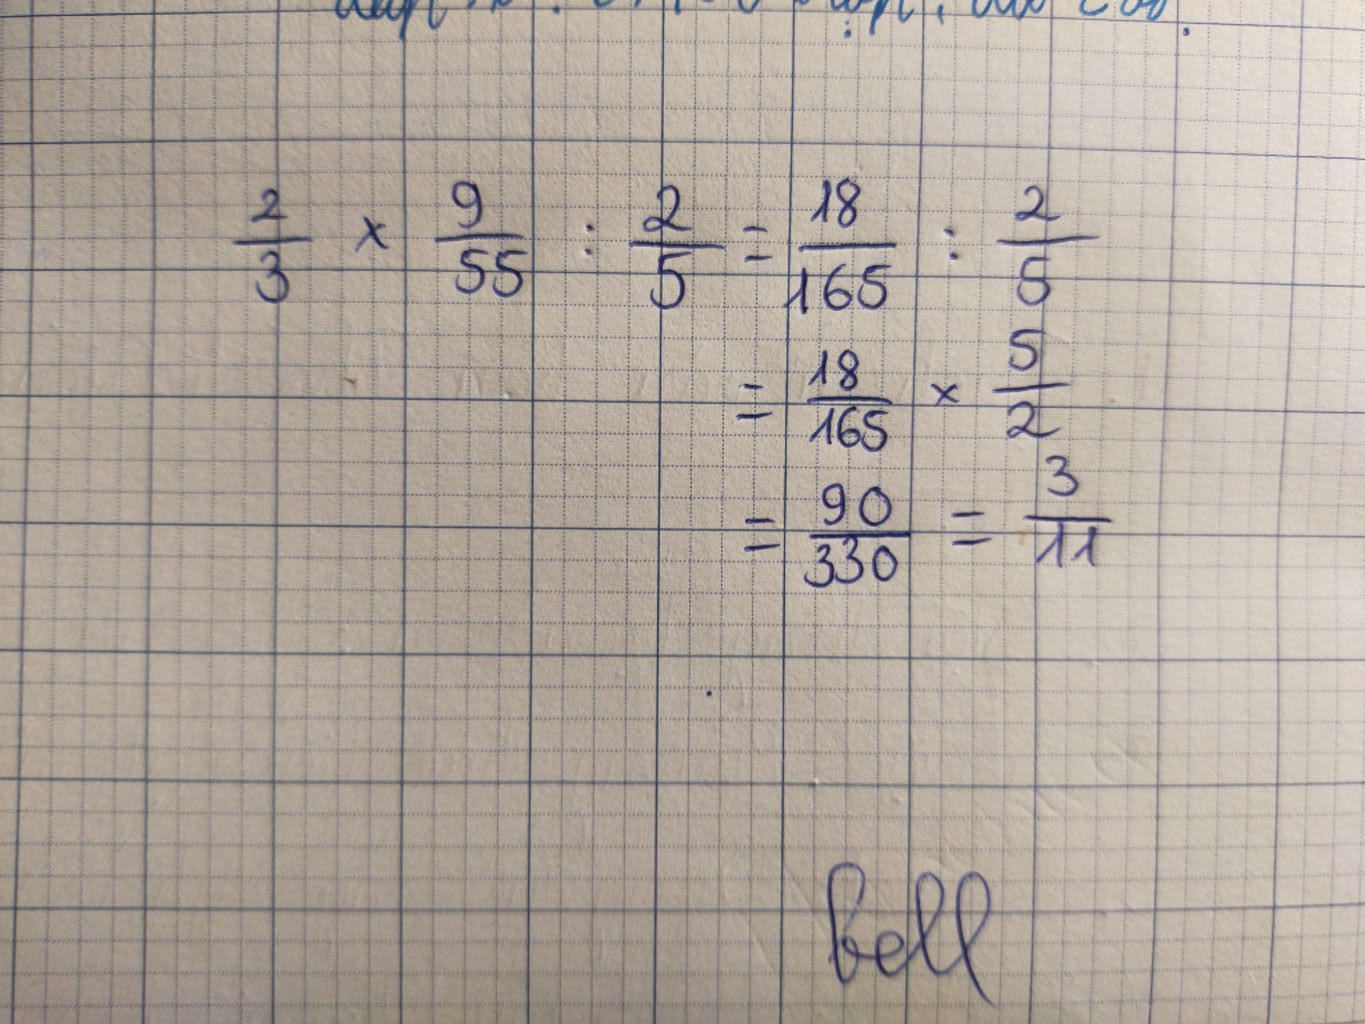 2/3 × 9/55 : 2/5 = 18/165 : 2/5
= 18/165 × 5/2
= 90/330 = 3/11
bell